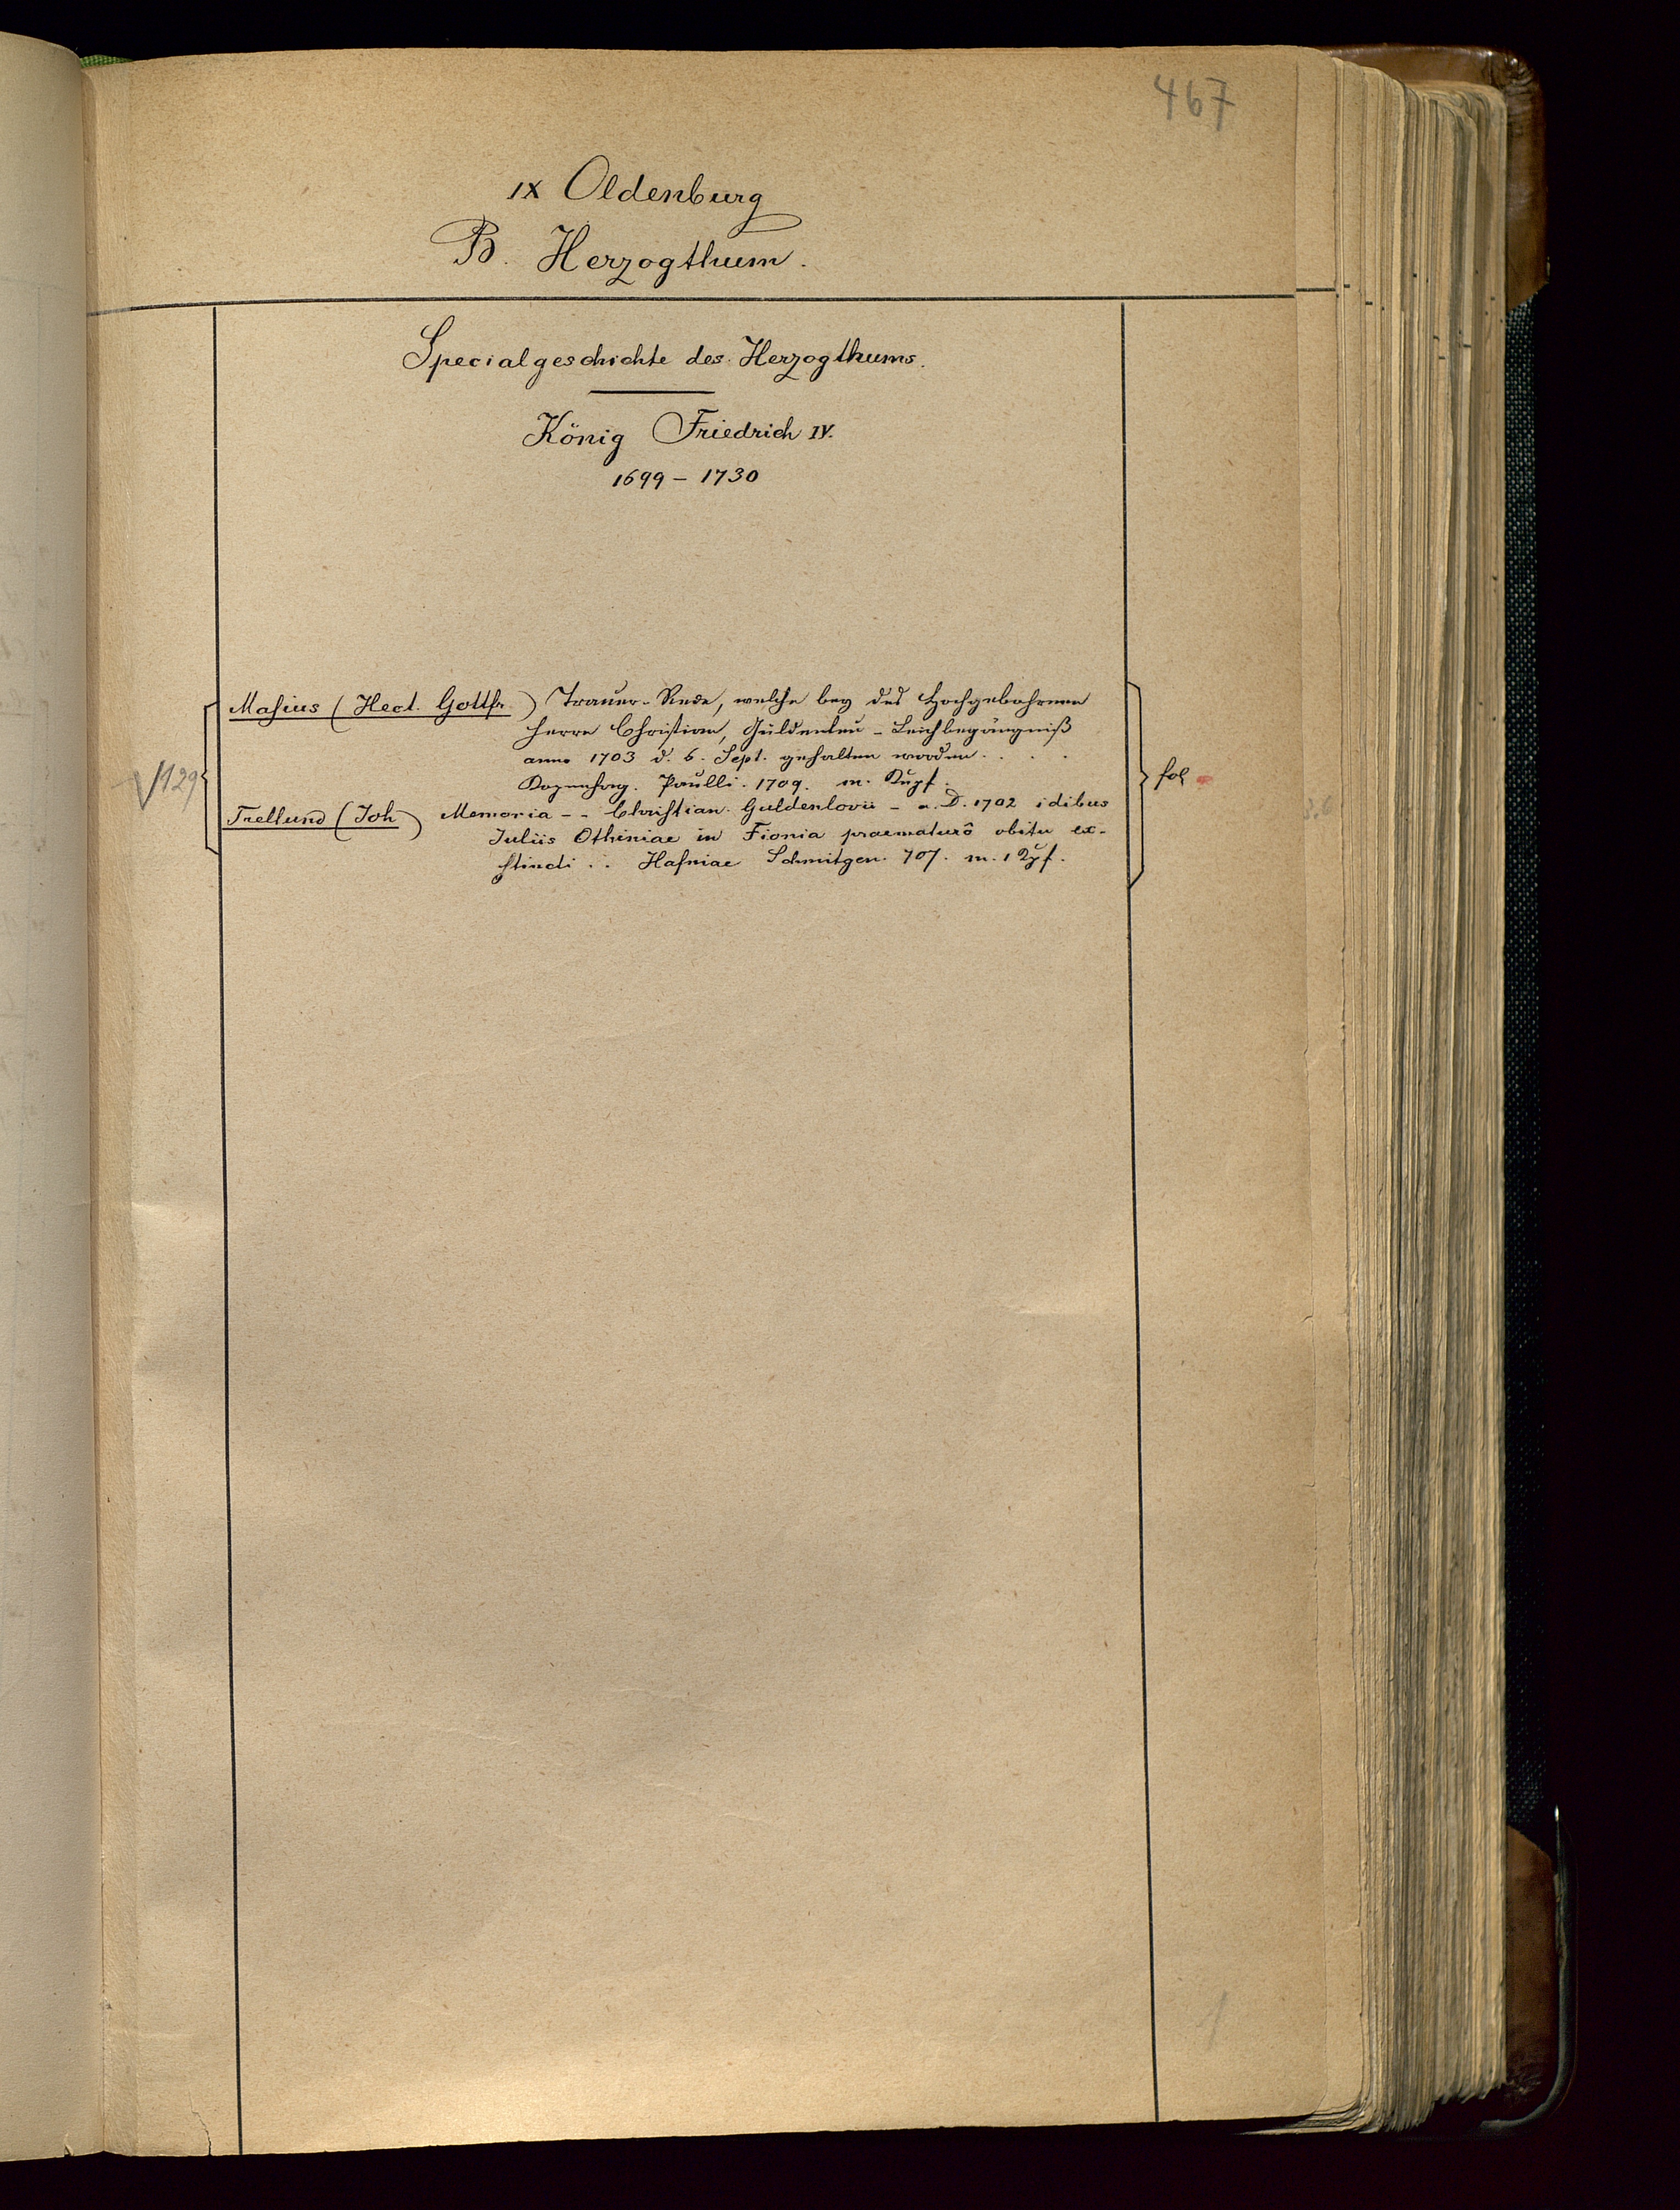 467
IX Oldenburg
B. Herzogthum.
Specialgeschichte des Herzogthums.
König Friedrich IV.
1699 – 1730
Masius (Hect. Gottfr.) Trauer-Rede, welche bey des Hochgebohrnen
Herrn Christian, Güldenleu – Leichbegängniß
anno 1703 d. 6. Sept. gehalten worden . . . .
Kopenhag. Paulli. 1709. m. Kupf.
129
fol
Trellund (Joh) Memoria - - Christian. Guldenlovii – a. D. 1702 idibus
Juliis Othiniae in Fionia praematurô obitu ex-
stincti . . Hafniae Schmitgen. 707. m. 1 Kpf.